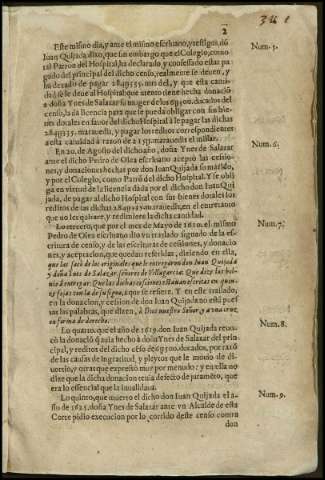 2
Este mismo dia, y ante el mismo escriuano, y testigos, dō
Iuan Quijada dixo, que sin embargo que el Colegio, como
Patron del Hospital, ha declarado, y confessado estar pa
gado del principal del dicho censo, realmente se deuen, y
ha de auer de pagar
didad se le deue al Hospital que atento tiene hecha donació
a doña Ynes de Salazar su muger de los ducados del
censo, la da licencia para que se pueda obligar con sus bie
nes dotales en fauor del dicho Hospital à le pagar las dichas
marauedis, y pagar los reditos correspondientes
a esta cantidad à razon de marauedis el millar.
En 20. de Agosto del dicho año, doña Ynes de Salazar
ante el dicho Pedro de Olea escriuano acepto las cessio-
nes, y donaciones hechas por don Iuan Quijada su marido,
y por el Colegio, como Patrō del dicho Hospital. Y se obli
ga en virtud de la licencia dada por el dicho don Iuan Qui
jada, de pagar al dicho Hospital con sus bienes dotales los
reditos de las dichas marauedis, en el entretanto
que no los quitare, y redimiere la dicha cantidad.
Lo tercero, que por el mes de Mayo de 1610. el mismo
Pedro de Olea escriuano dio vn traslado signado de la es
critura de censo, y de las escrituras de cessiones, y donacio
nes, y aceptacion, que quedan referidas, diziendo en ella,
que las sacò de los originales que le entregaron don Iuan Quijada
y doña Ynes de Salazar, señores de Villagarcia. Que dize las bol-
uio a entregar. Que las dichas cessiones estauan escritas en quin-
ze fojas con la de su signo, à que se refiere. Y en este traslado,
en la donacion, y cession de don Iuan Quijada no està pues
tas las palabras, que dizen, à Dios nuestro Señor, y a vna cruz
en forma de derecho.
Lo quarto, que el año de 1619. don Iuan Quijada reuo
cò la donació q̄ auia hecho à doña Ynes de Salazar del prin
cipal, y reditos del dicho censo de ducados, por razō
de las causas de ingratitud, y pleytos que le mouio de di-
uorcio, y otras que expressò muy por menudo; y en ella no
dize que la dicha donacion tenia defecto de juramēto, que
era lo essencial que la inualidaua.
Lo quinto, que muerto el dicho don Iuan Quijada el a-
ño de 1625. doña Ynes de Salazar ante vn Alcalde de esta
Corte pidio execucion por lo corrido deste censo contra
don
Num. 5.
Num. 6.
Num. 7.
Num. 8.
Num. 9.